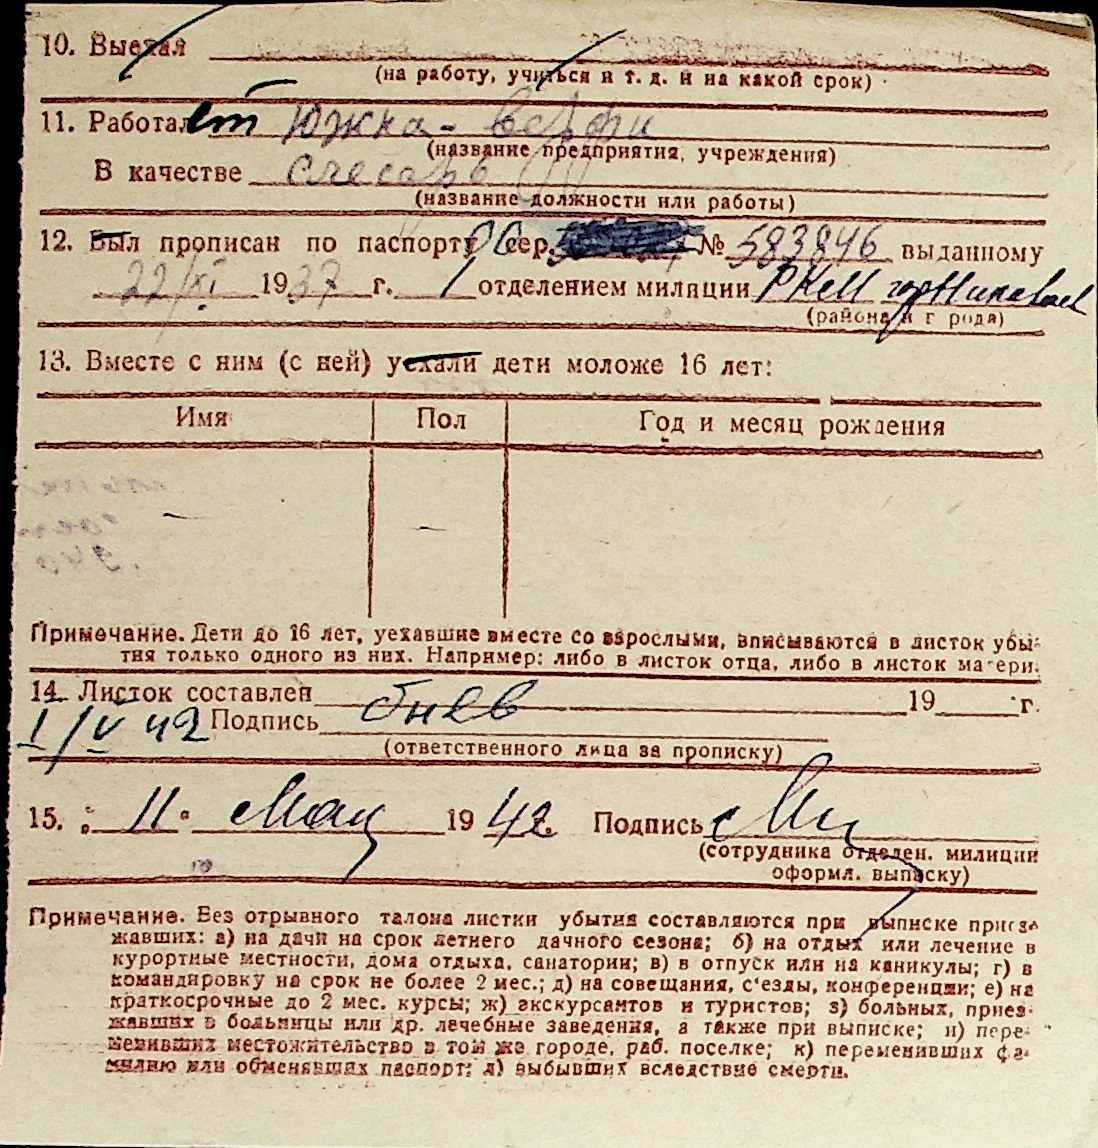 10. Выехал
(на работу, учиться и т. д. и на какой срок)
11. Работает Южна- верфи
(название предприятия, учреждения)
В качестве слесарь
(название должности или работы)
12. Был прописан по паспорту сер. № 583846 выданному
22/XI 1937 г. 1 отделением милиции РКМ гор Николаев
(района и города)
13. Вместе с ним (с ней) уехали дети моложе 16 лет:
Имя Пол Год и месяц рождения
— —
Примечание. Дети до 16 лет, уехавшие вместе со взрослыми, вписываются в листок убы-
тия только одного из них. Например: либо в листок отца, либо в листок матери.
14. Листок составлен 19 г.
1/V 42 Подпись
(ответственного лица за прописку)
15. „ 11 " Мая 1942 Подпись
(сотрудника отделен. милиции
оформл. выписку)
Примечание. Без отрывного талона листки убытия составляются при выписке приез-
жавших: а) на дачи на срок летнего дачного сезона; б) на отдых или лечение в
курортные местности, дома отдыха, санатории; в) в отпуск или на каникулы; г) в
командировку на срок не более 2 мес.; д) на совещания, с'езды, конференции; е) на
краткосрочные до 2 мес. курсы; ж) экскурсантов и туристов; з) больных, приез-
жавших в больницы или др. лечебные заведения, а также при выписке; и) пере-
менивших местожительство в том же городе, раб. поселке; к) переменивших фа-
милию или обменявших паспорт; л) выбывших вследствие смерти.